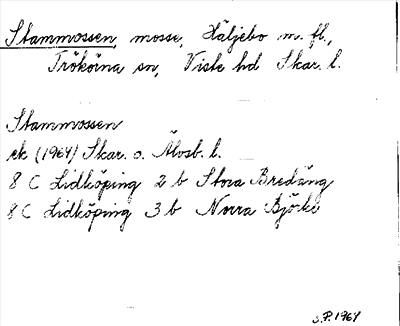 Stammossen, mosse, Häljebo m. fl.,
Trökörna sn, Viste hd Skar. l.
Stammossen
ek (1964) Skar. o. Älvsb. l.
8 C Lidköping 2 b Stora Bredäng
8 C Lidköping 3 b Norra Björke
S.P. 1964